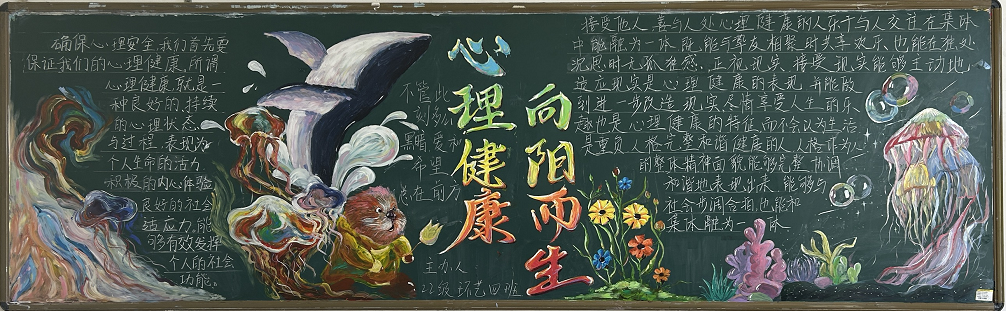 确保心理安全,我们首先要
保证我们的心理健康,所谓
心理健康就是一
种良好的,持续
的心理状态
与过程,表现为
个人生命的活力
积极的内心体验
良好的社会
适应力,能
够有效发挥
个人的社会
功能。
不管此
刻多么
黑暗爱和
希望
总在前方
心理健康
向阳而生
主办人
22级环艺四班
接受他人,善与人处心理健康的人乐于与人交往在集体
中融融为一体既能与挚友相聚时共享欢乐,也能在独处
沉思时无孤独感,正视现实,接受现实能够主动地,
适应现实是心理健康的表现并能做
到进一步改造现实尽情享受人生的乐
趣也是心理健康的特征而不会认为生活
是重负人格完整和谐健康的人人格作为人
的整体精神面貌能够完整协调
和谐地表现出来,能够与
社会步调合拍,也能和
集体融为一体